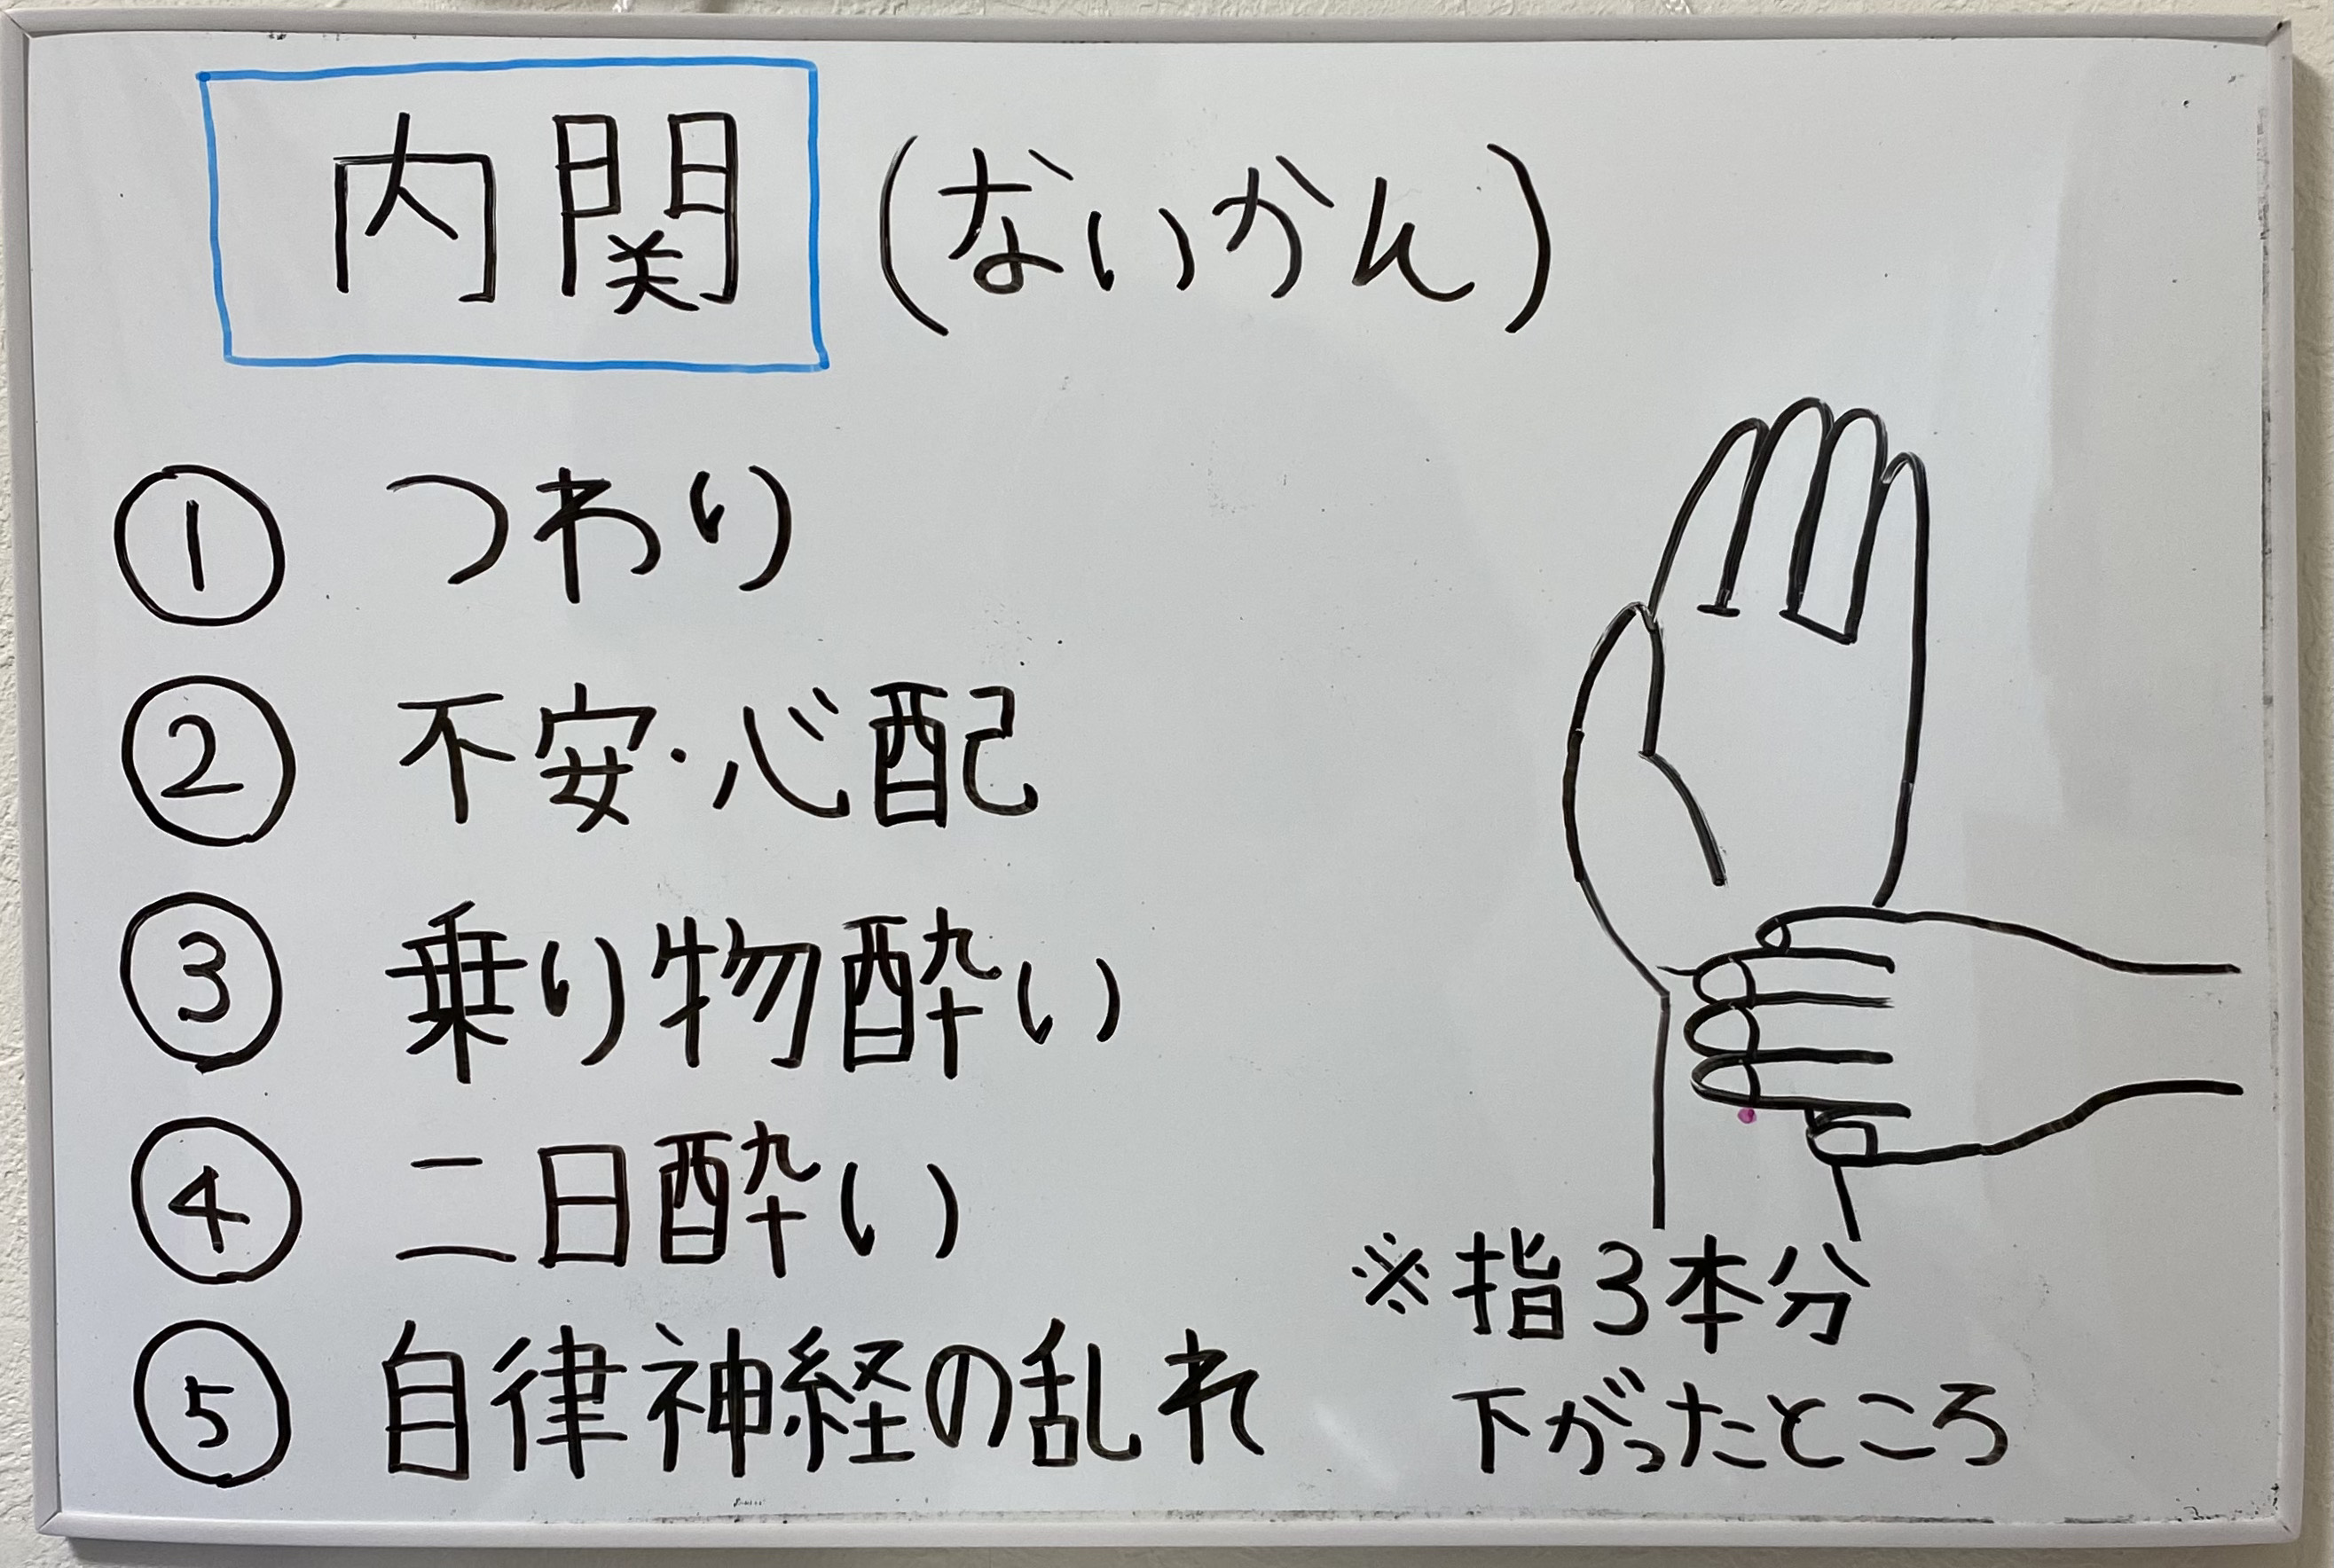 内関 (ないかん)
① つわり
② 不安・心配
③ 乗り物酔い
④ 二日酔い
⑤ 自律神経の乱れ
※指3本分
下がったところ